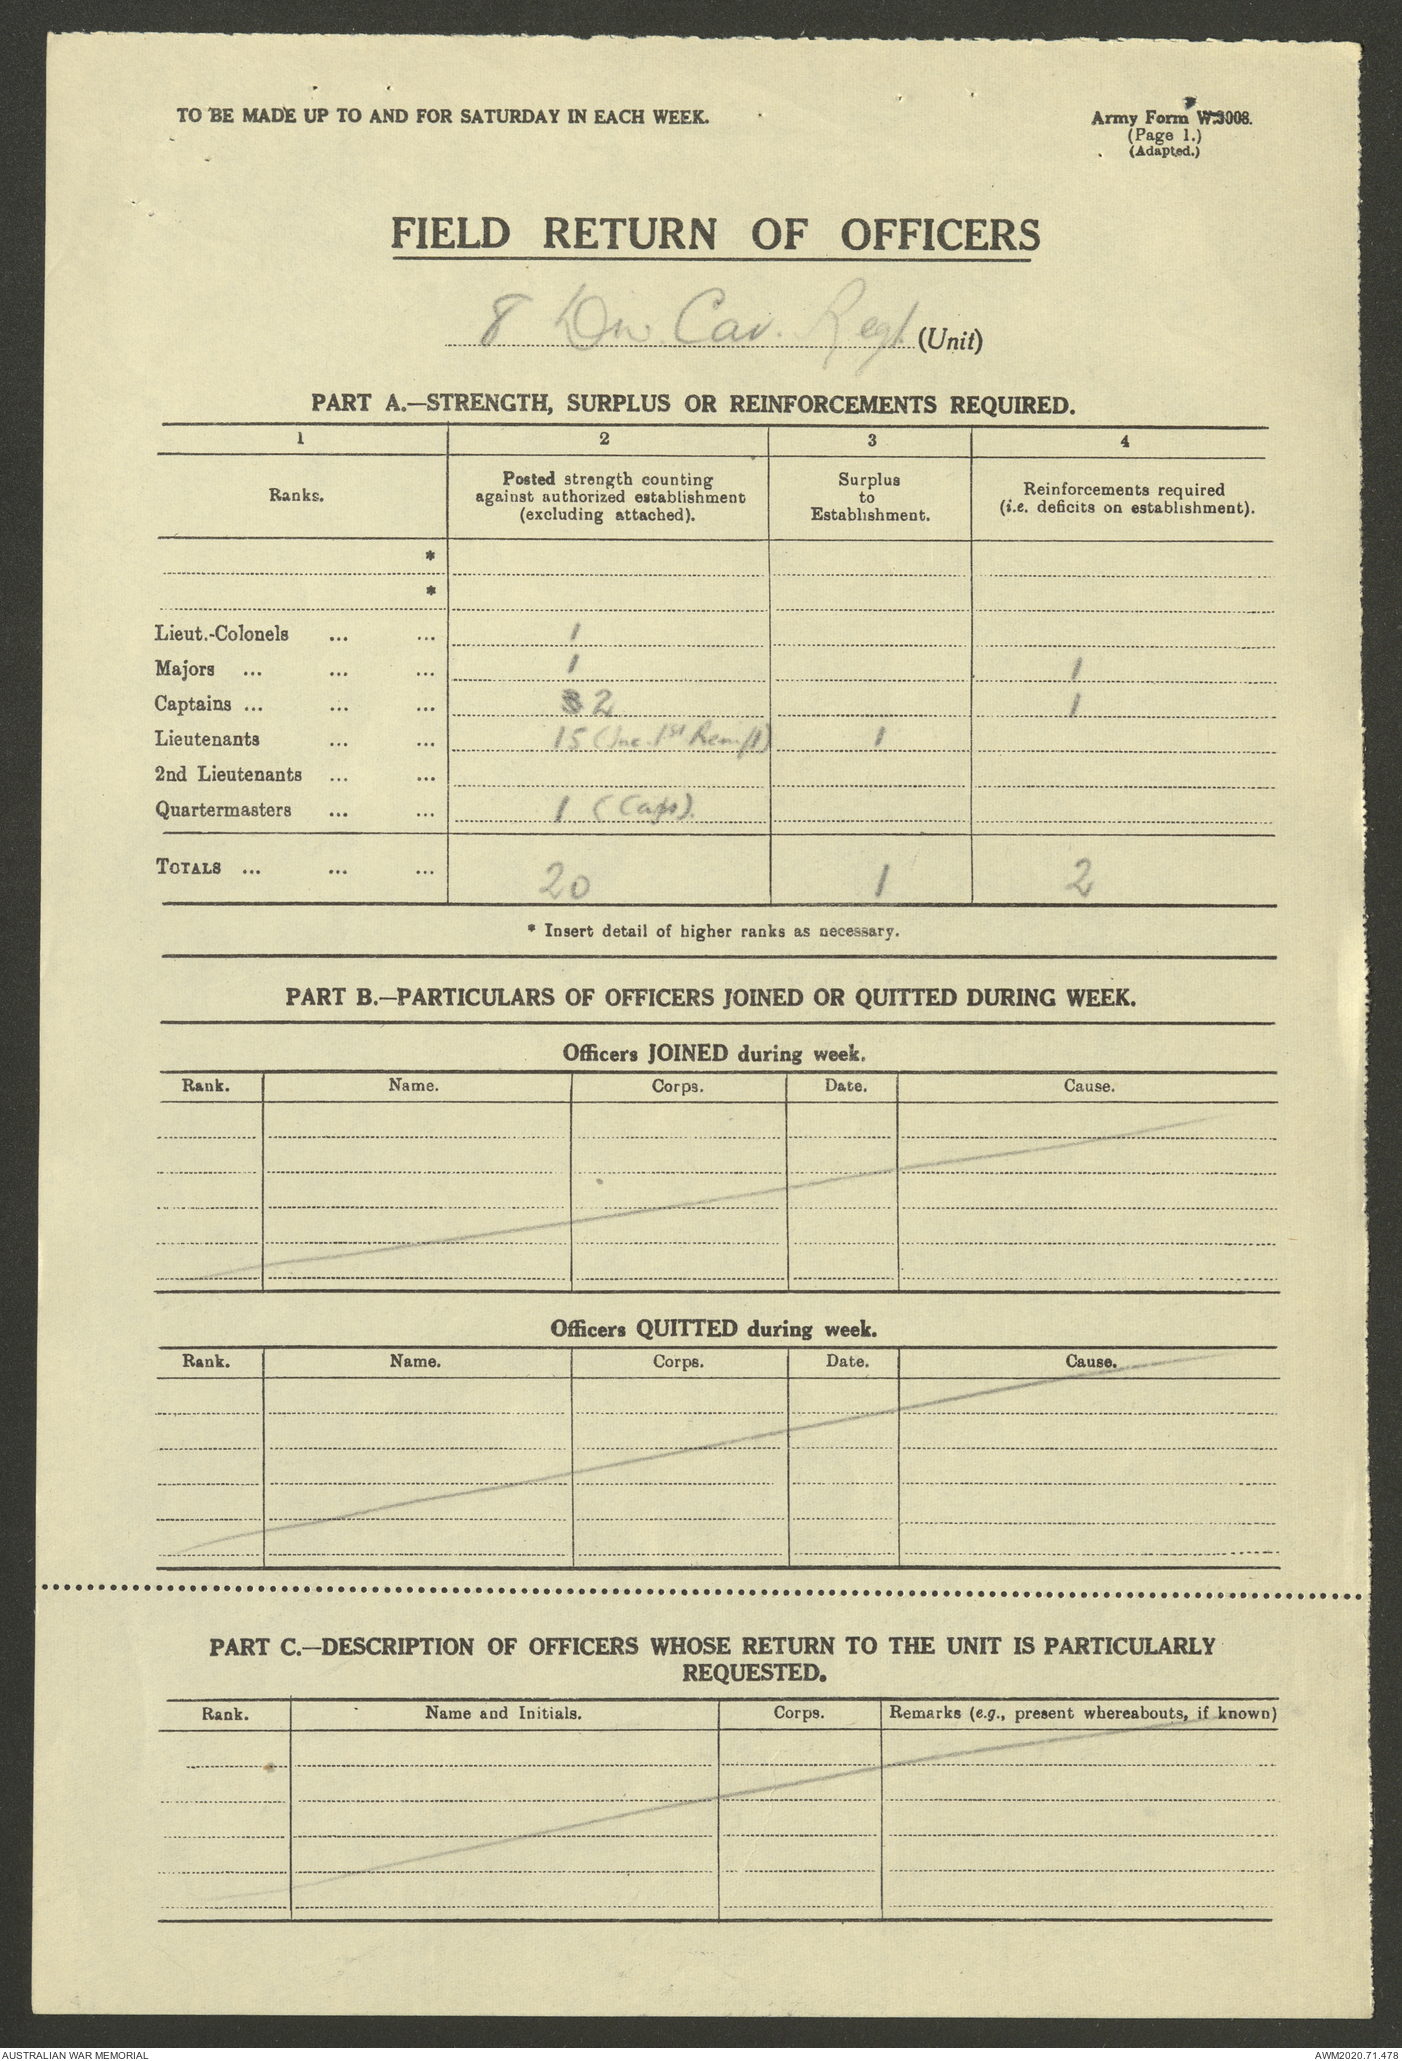 TO BE MADE UP TO AND FOR SATURDAY IN EACH WEEK.
Army Form W.3008.
(Page 1.)
(Adapted.)
FIELD RETURN OF OFFICERS
8 Div. Cav. Regt. (Unit)
PART A.—STRENGTH, SURPLUS OR REINFORCEMENTS REQUIRED.
1 2 3 4
Ranks.
Posted strength counting
against authorized establishment
(excluding attached).
Surplus
to
Establishment.
Reinforcements required
(i.e. deficits on establishment).
*
*
Lieut.-Colonels ... ... 1
Majors ... ... ... 1 1
Captains ... ... ... 2 1
Lieutenants ... ... 15 (Inc. 1st 1
2nd Lieutenants ... ...
Quartermasters ... ... 1 (Capt).
TOTALS ... ... ... 20 1 2
* Insert detail of higher ranks as necessary.
PART B.—PARTICULARS OF OFFICERS JOINED OR QUITTED DURING WEEK.
Officers JOINED during week.
Rank. Name. Corps. Date. Cause.
Officers QUITTED during week.
Rank. Name. Corps. Date. Cause.
PART C.—DESCRIPTION OF OFFICERS WHOSE RETURN TO THE UNIT IS PARTICULARLY
REQUESTED.
Rank. Name and Initials. Corps. Remarks (e.g., present whereabouts, if known)
AUSTRALIAN WAR MEMORIAL
AWM2020.71.478